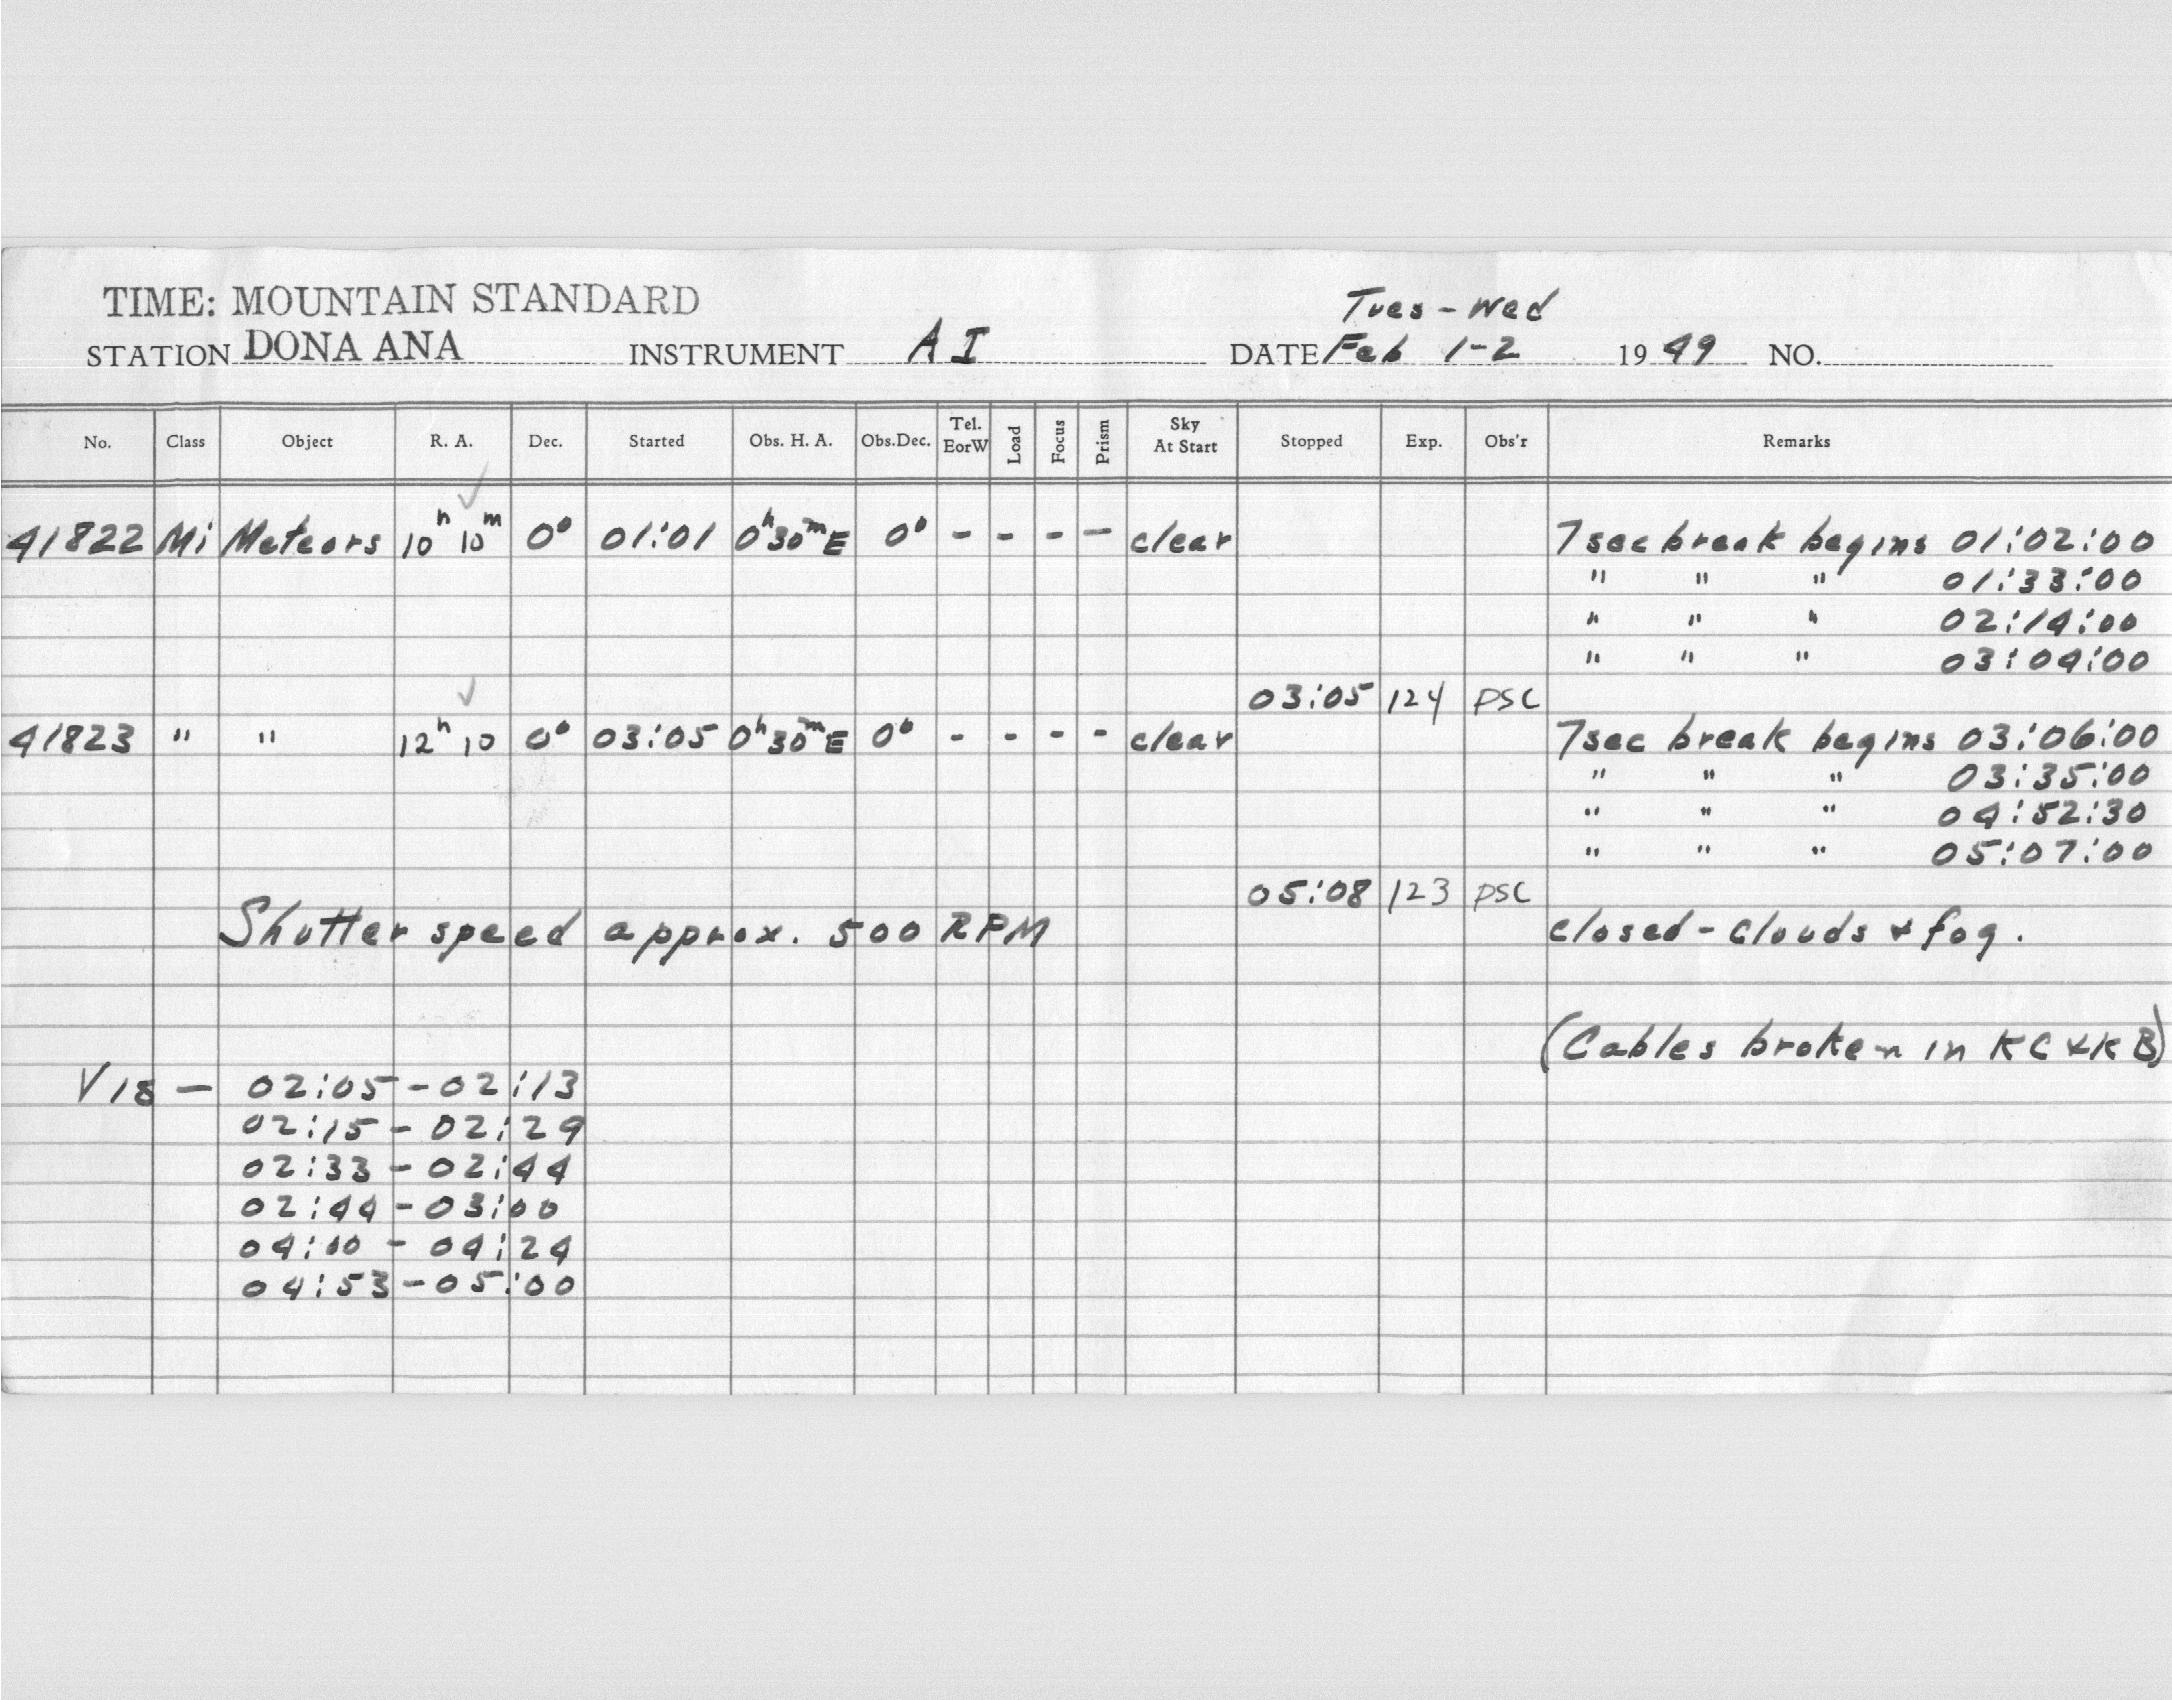 TIME: MOUNTAIN STANDARD
Tues - Wed
STATION DONA ANA INSTRUMENT AI DATE Feb 1-2 1949 NO.
No. Class Object R. A. Dec. Started Obs. H. A. Obs.Dec. Tel. EorW Load Focus Prism Sky At Start Stopped Exp. Obs'r Remarks
41822 Mi Meteors 10h 10m 0° 01:01 0h30mE 0° - - - - clear 7 sec break begins 01:02:00
" " " 01:33:00
" " " 02:14:00
" " " 03:04:00
03:05 124 PSC
41823 " " 12h 10 0° 03:05 0h30mE 0° - - - - clear 7 sec break begins 03:06:00
" " " 03:35:00
" " " 04:52:30
" " " 05:07:00
05:08 123 PSC
Shutter speed approx. 500 RPM closed - clouds & fog.
(Cables broken in KC & KB)
V18 - 02:05 - 02:13
02:15 - 02:29
02:33 - 02:44
02:44 - 03:00
04:10 - 04:24
04:53 - 05:00